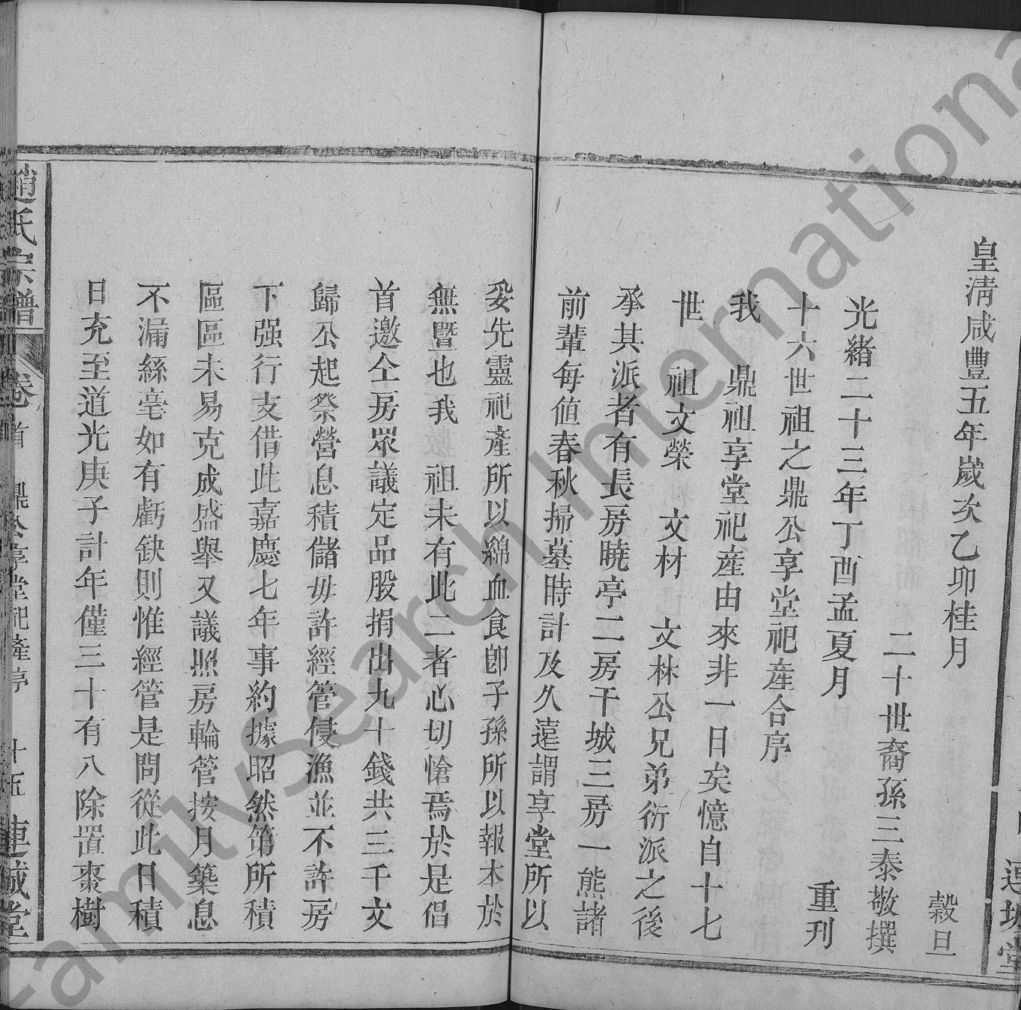 皇淸咸豐五年歲次乙卯桂月 穀旦
二十世裔孫三泰敬撰
光緒二十三年丁酉孟夏月 重刊
十六世祖之鼎公享堂祀產合序
我 鼎祖享堂祀產由來非一日矣憶自十七
世 祖文榮 文材 文林公兄弟衍派之後
承其派者有長房曉亭二房干城三房一熊諸
前輩每值春秋掃墓時計及久遠謂享堂所以
妥先靈祀產所以綿血食卽子孫所以報本於
無曁也我 祖未有此二者心切愴焉於是倡
首邀仝房眾議定品股捐出九十錢共三千文
歸公起祭營息積儲毋許經管侵漁並不許房
下强行支借此嘉慶七年事約據昭然第所積
區區未易克成盛舉又議照房輪管按月築息
不漏絲毫如有虧缺則惟經管是問從此日積
日充至道光庚子計年僅三十有八除置棗樹
趙氏宗譜 卷首 鼎公享堂祀產序 十五 連城堂
連城堂
FamilySearch International